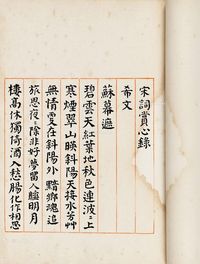 宋詞賞心錄
希文
蘇幕遮
碧雲天紅葉地秋色連波〻上
寒煙翠山暎斜陽天接水芳艸
無情更在斜陽外黯鄉魂追
旅思夜〻除非好夢留人睡明月
樓高休獨倚酒入愁腸化作相思